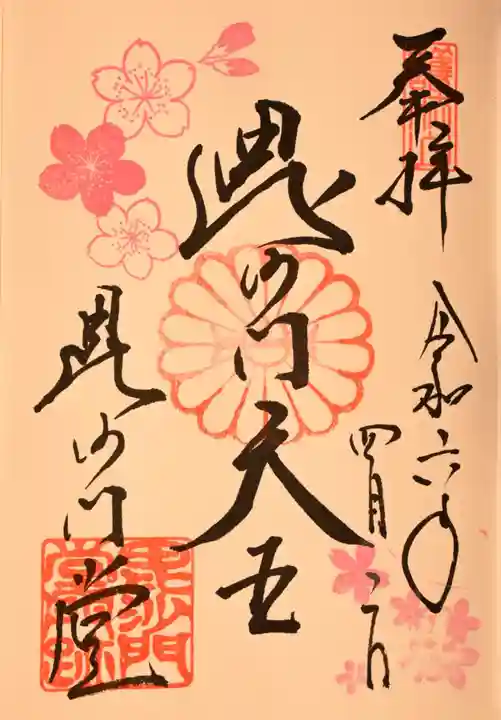 奉拝
令和六年
四月二日
毘沙門天王
毘沙門堂